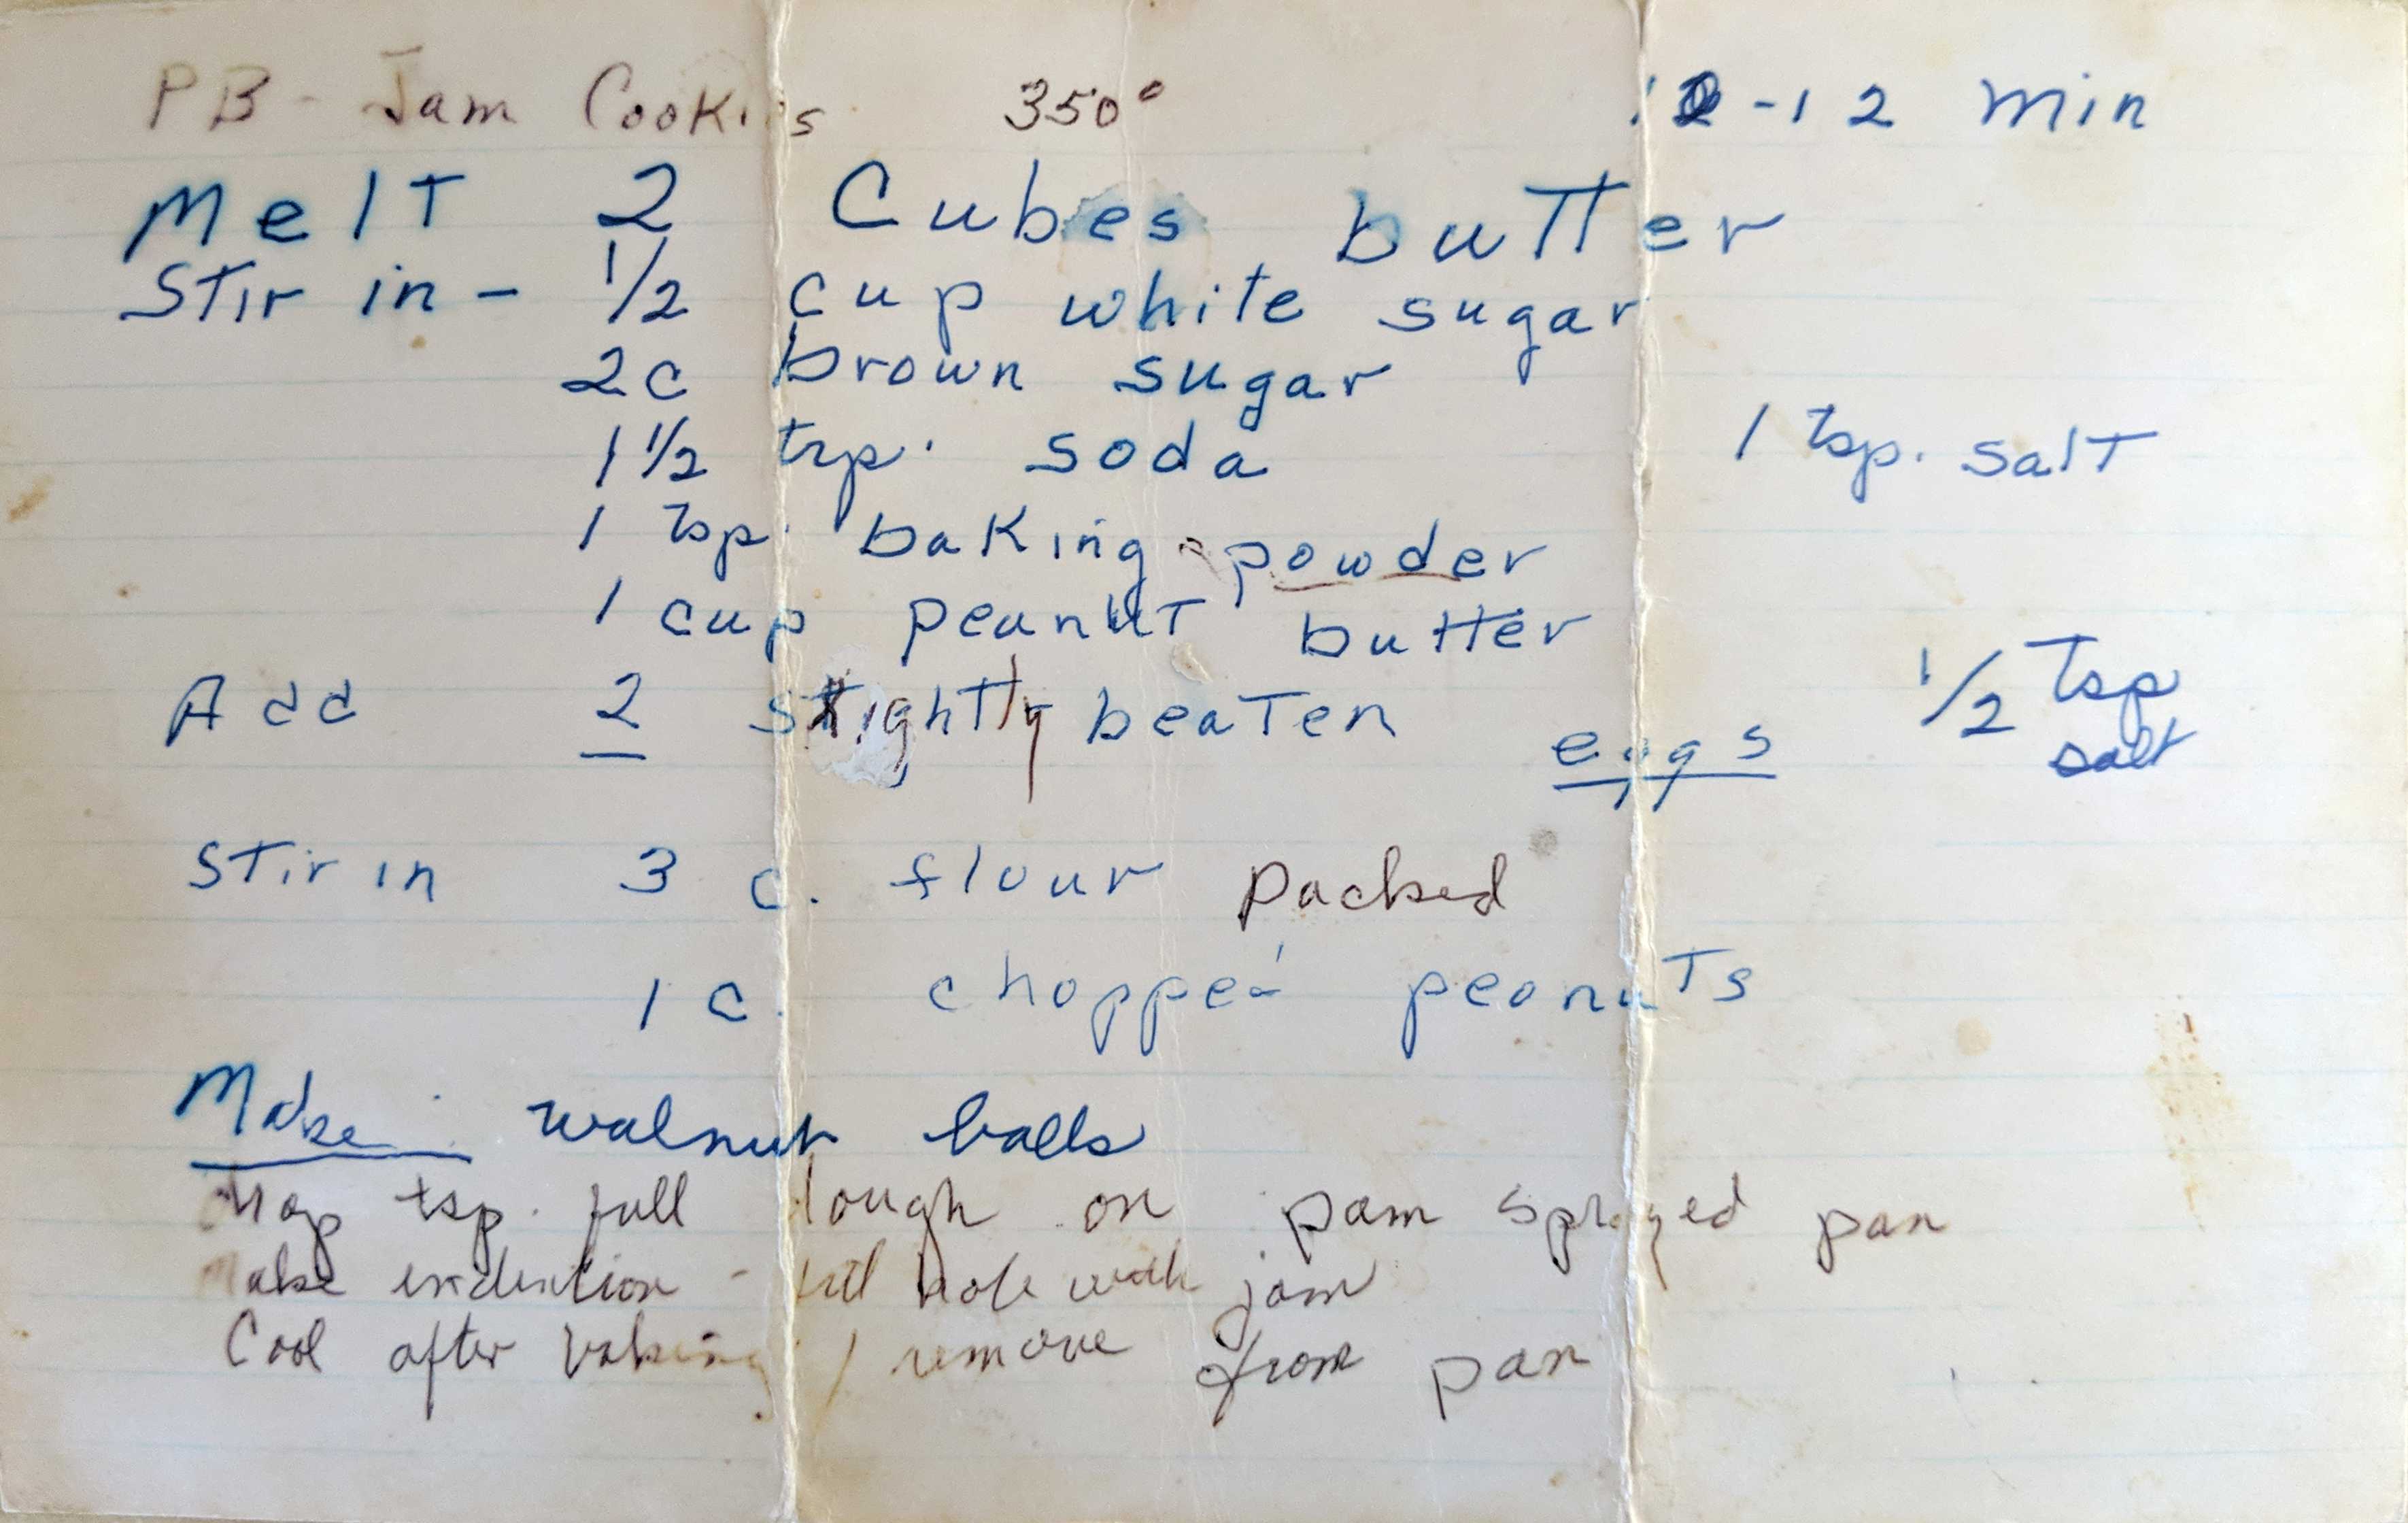 PB - Jam Cookies 350° 10-12 min
Melt 2 Cubes butter
Stir in - 1/2 cup white sugar
2c brown sugar
1 1/2 tsp. soda 1 tsp. salt
1 tsp. baking powder
1 cup peanut butter
Add 2 slightly beaten eggs 1/2 tsp salt
Stir in 3 c. flour packed
1 c. chopped peanuts
Make walnut balls
tsp. full dough on pam sprayed pan
Make indention - fill hole with jam
Cool after baking / remove from pan